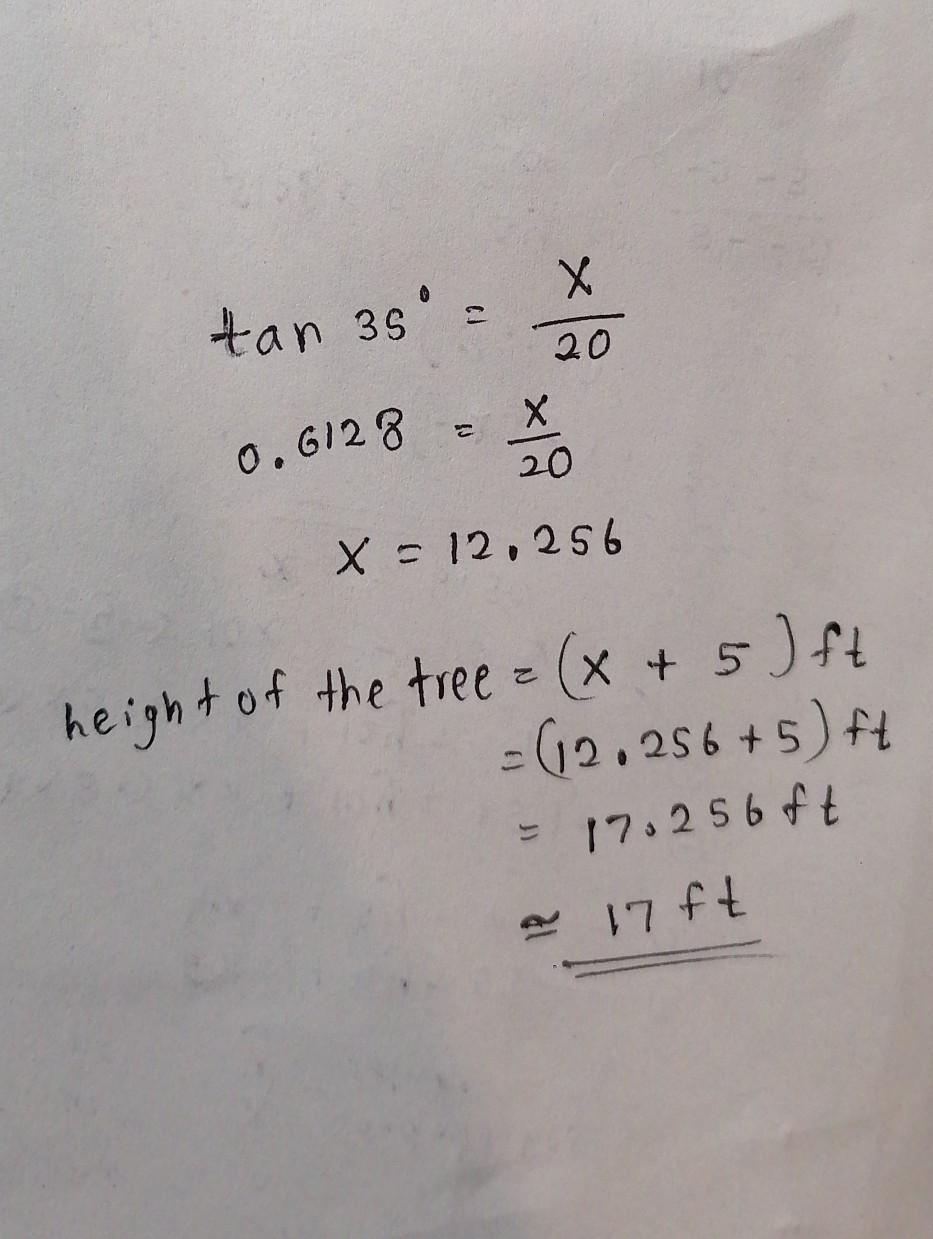 tan 35° = x/20
0.6128 = x/20
x = 12.256
height of the tree = (x + 5) ft
= (12.256 + 5) ft
= 17.256 ft
≅ 17 ft